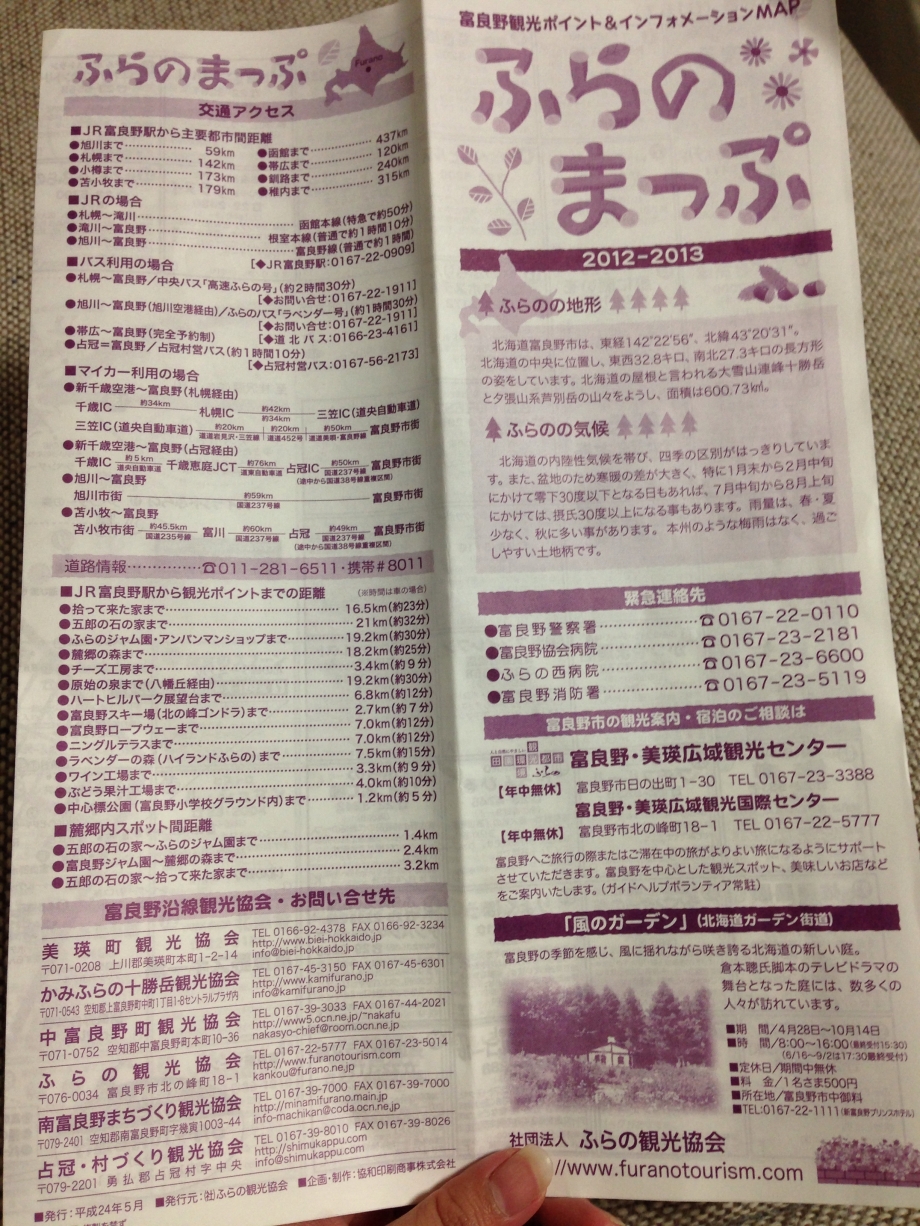 ふらのまっぷ
Furano
交通アクセス
■JR富良野駅から主要都市間距離
●旭川まで………… 59km
●札幌まで………… 142km
●小樽まで………… 173km
●苫小牧まで……… 179km
●函館まで………… 437km
●帯広まで………… 120km
●釧路まで………… 240km
●稚内まで………… 315km
■JRの場合
●札幌〜滝川…………函館本線(特急で約50分)
●滝川〜富良野…………根室本線(普通で約1時間10分)
●旭川〜富良野…………富良野線(普通で約1時間)
[◆JR富良野駅:0167-22-0909]
■バス利用の場合
●札幌〜富良野/中央バス「高速ふらの号」(約2時間30分)
[◆お問い合せ:0167-22-1911]
●旭川〜富良野(旭川空港経由)/ふらのバス「ラベンダー号」(約1時間30分)
[◆お問い合せ:0167-22-1911]
●帯広〜富良野(完全予約制) [◆道北バス:0166-23-4161]
●占冠=富良野/占冠村営バス(約1時間10分)
[◆占冠村営バス:0167-56-2173]
■マイカー利用の場合
●新千歳空港〜富良野(札幌経由)
千歳IC 約34km 札幌IC 約42km 約34km 三笠IC(道央自動車道)
三笠IC(道央自動車道) 約20km 道道岩見沢・三笠線 約20km 国道452号 約50km 道道美唄・富良野線 富良野市街
●新千歳空港〜富良野(占冠経由)
千歳IC 約5km 道央自動車道 千歳恵庭JCT 約76km 道東自動車道 占冠IC 約50km 国道237号線 富良野市街
(途中から国道38号線重複区間)
●旭川〜富良野
旭川市街 約59km 国道237号線 富良野市街
●苫小牧〜富良野
苫小牧市街 約45.5km 国道235号線 富川 約60km 国道237号線 占冠 約49km 国道237号線 富良野市街
(途中から国道38号線重複区間)
道路情報……………☎011-281-6511・携帯#8011
■JR富良野駅から観光ポイントまでの距離 (※時間は車の場合)
●拾って来た家まで………… 16.5km(約23分)
●五郎の石の家まで………… 21km(約32分)
●ふらのジャム園・アンパンマンショップまで………… 19.2km(約30分)
●麓郷の森まで………… 18.2km(約25分)
●チーズ工房まで………… 3.4km(約9分)
●原始の泉まで(八幡丘経由)………… 19.2km(約30分)
●ハートヒルパーク展望台まで………… 6.8km(約12分)
●富良野スキー場(北の峰ゴンドラ)まで………… 2.7km(約7分)
●富良野ロープウェーまで………… 7.0km(約12分)
●ニングルテラスまで………… 7.0km(約12分)
●ラベンダーの森(ハイランドふらの)まで………… 7.5km(約15分)
●ワイン工場まで………… 3.3km(約9分)
●ぶどう果汁工場まで………… 4.0km(約10分)
●中心標公園(富良野小学校グラウンド内)まで………… 1.2km(約5分)
■麓郷内スポット間距離
●五郎の石の家〜ふらのジャム園まで………… 1.4km
●富良野ジャム園〜麓郷の森まで………… 2.4km
●五郎の石の家〜拾って来た家まで………… 3.2km
富良野沿線観光協会・お問い合せ先
美瑛町観光協会
〒071-0208 上川郡美瑛町本町1-2-14
TEL 0166-92-4378 FAX 0166-92-3234
http://www.biei-hokkaido.jp
info@biei-hokkaido.jp
かみふらの十勝岳観光協会
〒071-0543 空知郡上富良野町中町1丁目1-8セントラルプラザ内
TEL 0167-45-3150 FAX 0167-45-6301
http://www.kamifurano.jp
info@kamifurano.jp
中富良野町観光協会
〒071-0752 空知郡中富良野町本町10-36
TEL 0167-39-3033 FAX 0167-44-2021
http://www5.ocn.ne.jp/~nakafu
nakasyo-chief@room.ocn.ne.jp
ふらの観光協会
〒076-0034 富良野市北の峰町18-1
TEL 0167-22-5777 FAX 0167-23-5014
http://www.furanotourism.com
kankou@furano.ne.jp
南富良野まちづくり観光協会
〒079-2401 空知郡南富良野町字幾寅1003-44
TEL 0167-39-7000 FAX 0167-39-7000
http://minamifurano.main.jp
info-machikan@coda.ocn.ne.jp
占冠・村づくり観光協会
〒079-2201 勇払郡占冠村字中央
TEL 0167-39-8010 FAX 0167-39-8026
http://shimukappu.com
info@shimukappu.com
■発行:平成24年5月 ■発行元:㈳ふらの観光協会 ■企画・制作:協和印刷商事株式会社
富良野観光ポイント&インフォメーションMAP
ふらの
まっぷ
2012-2013
ふらのの地形
北海道富良野市は、東経142°22′56″、北緯43°20′31″。
北海道の中央に位置し、東西32.8キロ、南北27.3キロの長方形
の姿をしています。北海道の屋根と言われる大雪山連峰十勝岳
と夕張山系芦別岳の山々をようし、面積は600.73㎢。
ふらのの気候
北海道の内陸性気候を帯び、四季の区別がはっきりしていま
す。また、盆地のため寒暖の差が大きく、特に1月末から2月中旬
にかけて零下30度以下となる日もあれば、7月中旬から8月上旬
にかけては、摂氏30度以上になる事もあります。雨量は、春・夏
少なく、秋に多い事があります。本州のような梅雨はなく、過ご
しやすい土地柄です。
緊急連絡先
●富良野警察署…………☎0167-22-0110
●富良野協会病院…………☎0167-23-2181
●ふらの西病院…………☎0167-23-6600
●富良野消防署…………☎0167-23-5119
富良野市の観光案内・宿泊のご相談は
富良野・美瑛広域観光センター
【年中無休】 富良野市日の出町1-30 TEL 0167-23-3388
富良野・美瑛広域観光国際センター
【年中無休】 富良野市北の峰町18-1 TEL 0167-22-5777
富良野へご旅行の際またはご滞在中の旅がよりよい旅になるようにサポート
させていただきます。富良野を中心とした観光スポット、美味しいお店など
をご案内いたします。(ガイドヘルプボランティア常駐)
「風のガーデン」(北海道ガーデン街道)
富良野の季節を感じ、風に揺れながら咲き誇る北海道の新しい庭。
倉本聰氏脚本のテレビドラマの
舞台となった庭には、数多くの
人々が訪れています。
■期 間/4月28日〜10月14日
■時 間/8:00〜16:00(最終受付15:30)
(6/16〜9/2は17:30最終受付)
■定休日/期間中無休
■料 金/1名さま500円
■所在地/富良野市中御料
■TEL:0167-22-1111(新富良野プリンスホテル)
社団法人 ふらの観光協会
//www.furanotourism.com